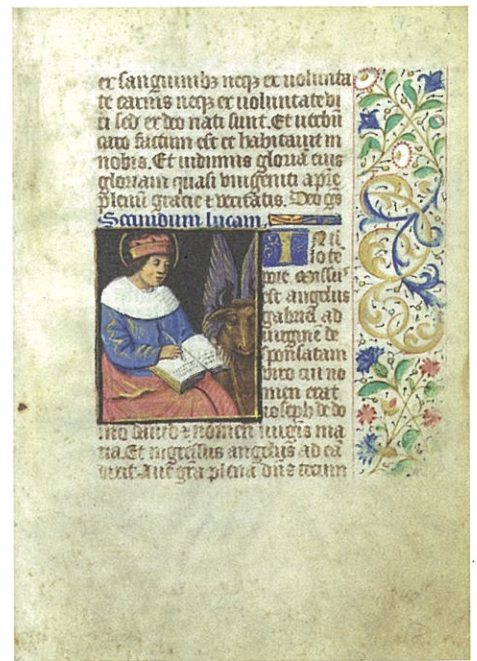 ex sanguinibz neqz ex volunta
te carnis neqz ex voluntate vi
ri sed ex deo nati sunt. Et verbū
caro factum est et habitavit in
nobis. Et vidimus gloriā eius
gloriam quasi vnigeniti a pre
plenū gracie et veritatis. Deo gs
Secundum lucam.
In il
lo te
pore missus
est angelus
gabriel ad
virginē de
sponsatam
viro cui no
men erat
ioseph de do
mo david et nomen virgis ma
ria. Et ingressus angelus ad eā
dixit. Ave grā plena dns tecum